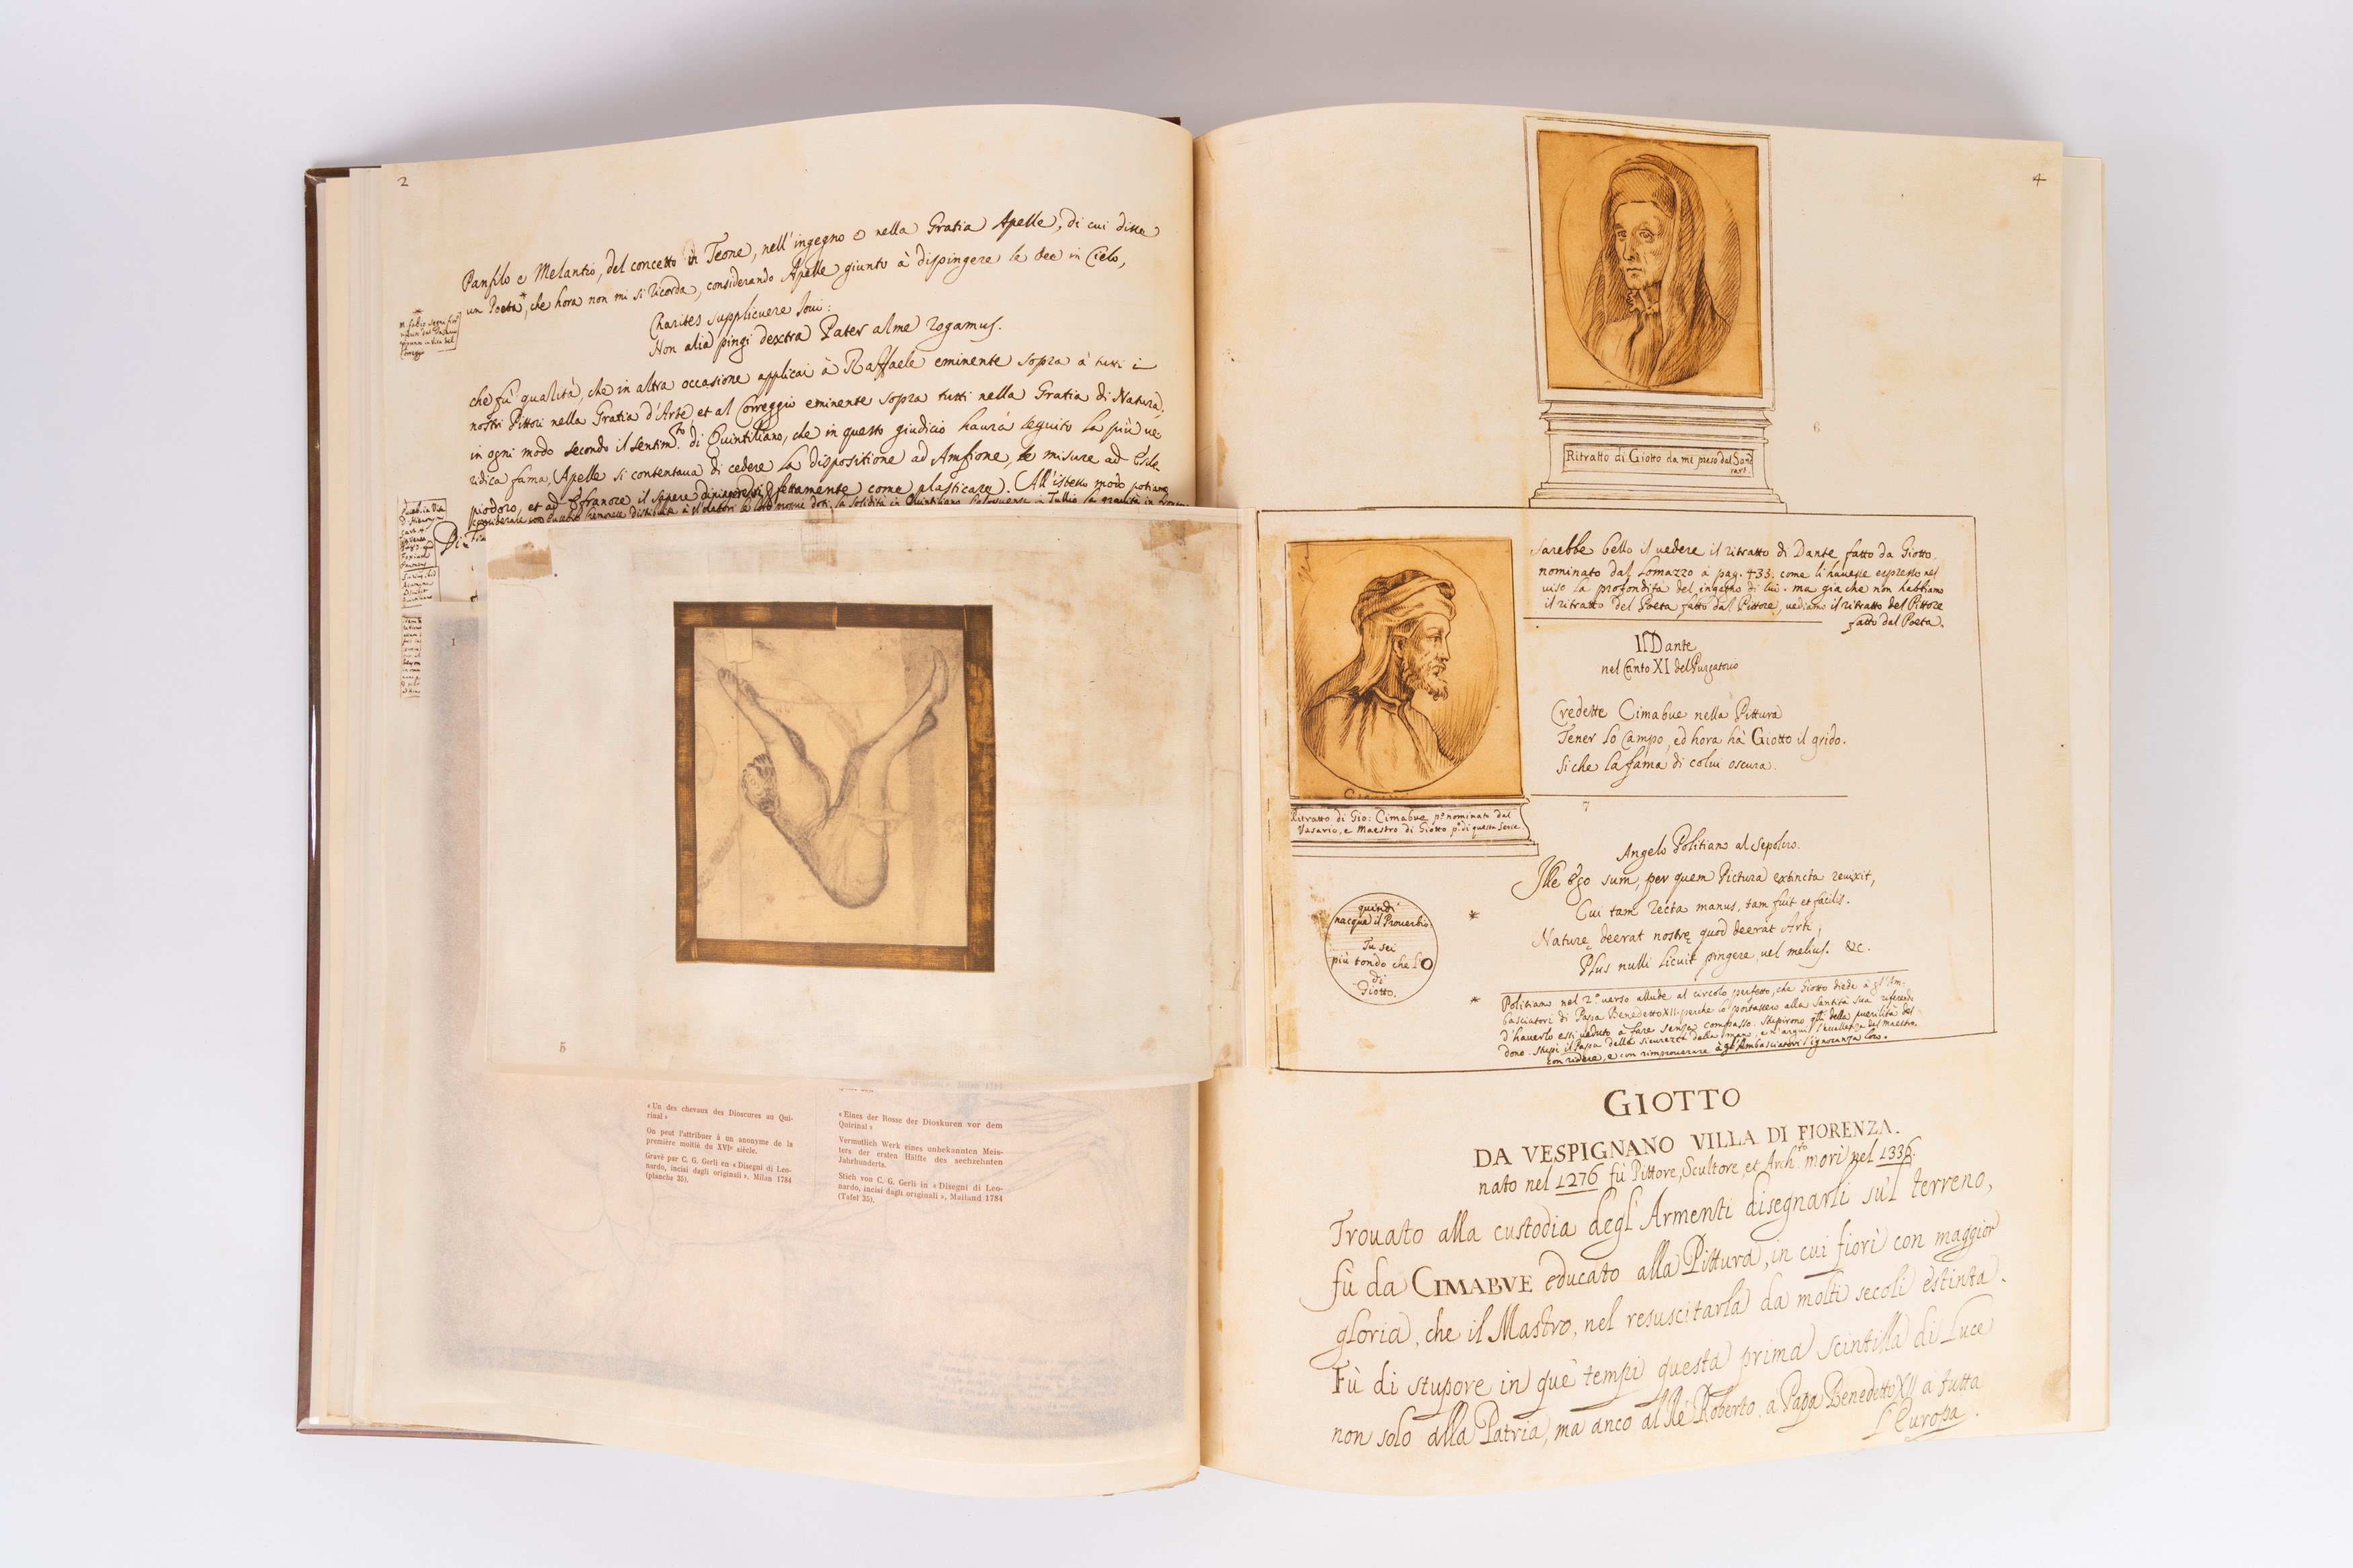 2
Panfilo e Melantio, del concetto in Teone, nell'ingegno e nella Gratia Apelle, di cui disse
un Poeta*, che hora non mi si ricorda, considerando Apelle giunto à dispingere le Dee in Cielo,
Charites supplicuere Joui:
Non alia pingi dextra Pater alme rogamus.
che fu qualità, che in altra occasione applicai à Raffaele eminente sopra à tutti i
nostri Pittori nella Gratia d'Arte et al Correggio eminente sopra tutti nella Gratia di Natura,
in ogni modo secondo il sentim.to di Quintiliano, che in questo giudicio haurà seguito la più ue
ridica fama, (Apelle si contentaua di cedere la dispositione ad Amfione, le misure ad Escle
piodoro, et ad Eufranore il sapere fettamente come plasticare) (All'istesso modo potiamo
1
5
«Un des chevaux des Dioscures au Qui-
rinal»
On peut l'attribuer à un anonyme de la
première moitié du XVIe siècle.
Gravé par C. G. Gerli en «Disegni di Leo-
nardo, incisi dagli originali», Milan 1784
(planche 35).
«Eines der Rosse der Dioskuren vor dem
Quirinal»
Vermutlich Werk eines unbekannten Meis-
ters der ersten Hälfte des sechzehnten
Jahrhunderts.
Stich von C. G. Gerli in «Disegni di Leo-
nardo, incisi dagli originali», Mailand 1784
(Tafel 35).
4
6
Ritratto di Giotto da me preso dal Sand
rart.
Sarebbe bello il vedere il ritratto di Dante fatto da Giotto,
nominato dal Lomazzo à pag. 433. come li hauesse espresso nel
uiso la profondità del ingegno di lui. ma gia che non habbiamo
il ritratto del Poeta fatto dal Pittore, vediamo il ritratto del Pittore
fatto dal Poeta.
Il Dante
nel Canto XI del Purgatorio
Credette Cimabue nella Pittura
Tener lo Campo, ed hora hà Giotto il grido.
Si che la fama di colui oscura.
7
Ritratto di Gio: Cimabue p.o nominato dal
Vasario, e Maestro di Giotto p.o di questa Serie
Angelo Politiano al Sepolcro.
Ille Ego sum, per quem Pictura extincta reuixit,
* Cui tam recta manus, tam fuit et facilis.
Naturę deerat nostrę quod deerat Arti;
Plus nulli licuit pingere, vel melius. &c.
quindi
nacque il Prouerbio.
Tu sei
più tondo che l'O
di
Giotto.
* Politiano nel 2.o verso allude al circolo perfetto, che Giotto diede à gl'Am-
basciatori di Papa Benedetto XII. perche lo portassero alla Santità sua riferendo
d'hauerlo essi ueduto à fare senza compasso. Stupirono gli della puerilità del
dono. Stupì il Papa della sicurezza della mano, e n'arguì l'eccellenza del maestro.
con ridere, e con rimprouerare à gl'Ambasciatori l'ignoranza loro.
GIOTTO
DA VESPIGNANO VILLA DI FIORENZA.
nato nel 1276 fù Pittore, Scultore, et Arch.to morì nel 1336.
Trouato alla custodia degl'Armenti disegnarli sù'l terreno,
fù da CIMABVE educato alla Pittura, in cui fiorì con maggior
gloria, che il Mastro, nel resuscitarla da molti secoli estinta.
Fù di stupore in que tempi questa prima scintilla di Luce
non solo alla Patria, ma anco al Rè Roberto, a Papa Benedetto XII a tutta
l'Europa.